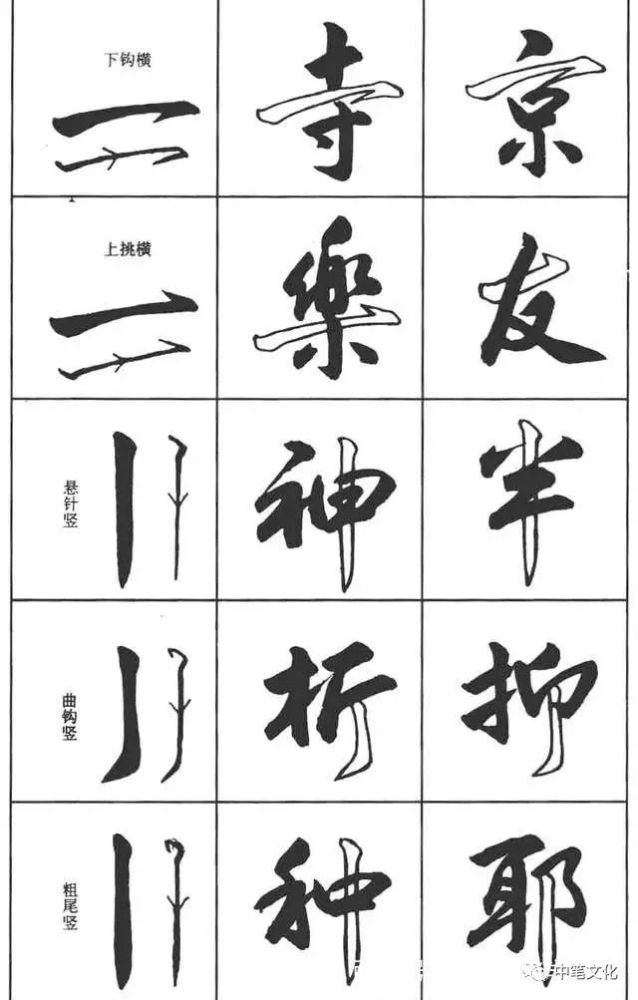 下钩横
寺
京
上挑横
樂
友
悬针竖
神
半
曲钩竖
折
抑
粗尾竖
种
耶
中笔文化